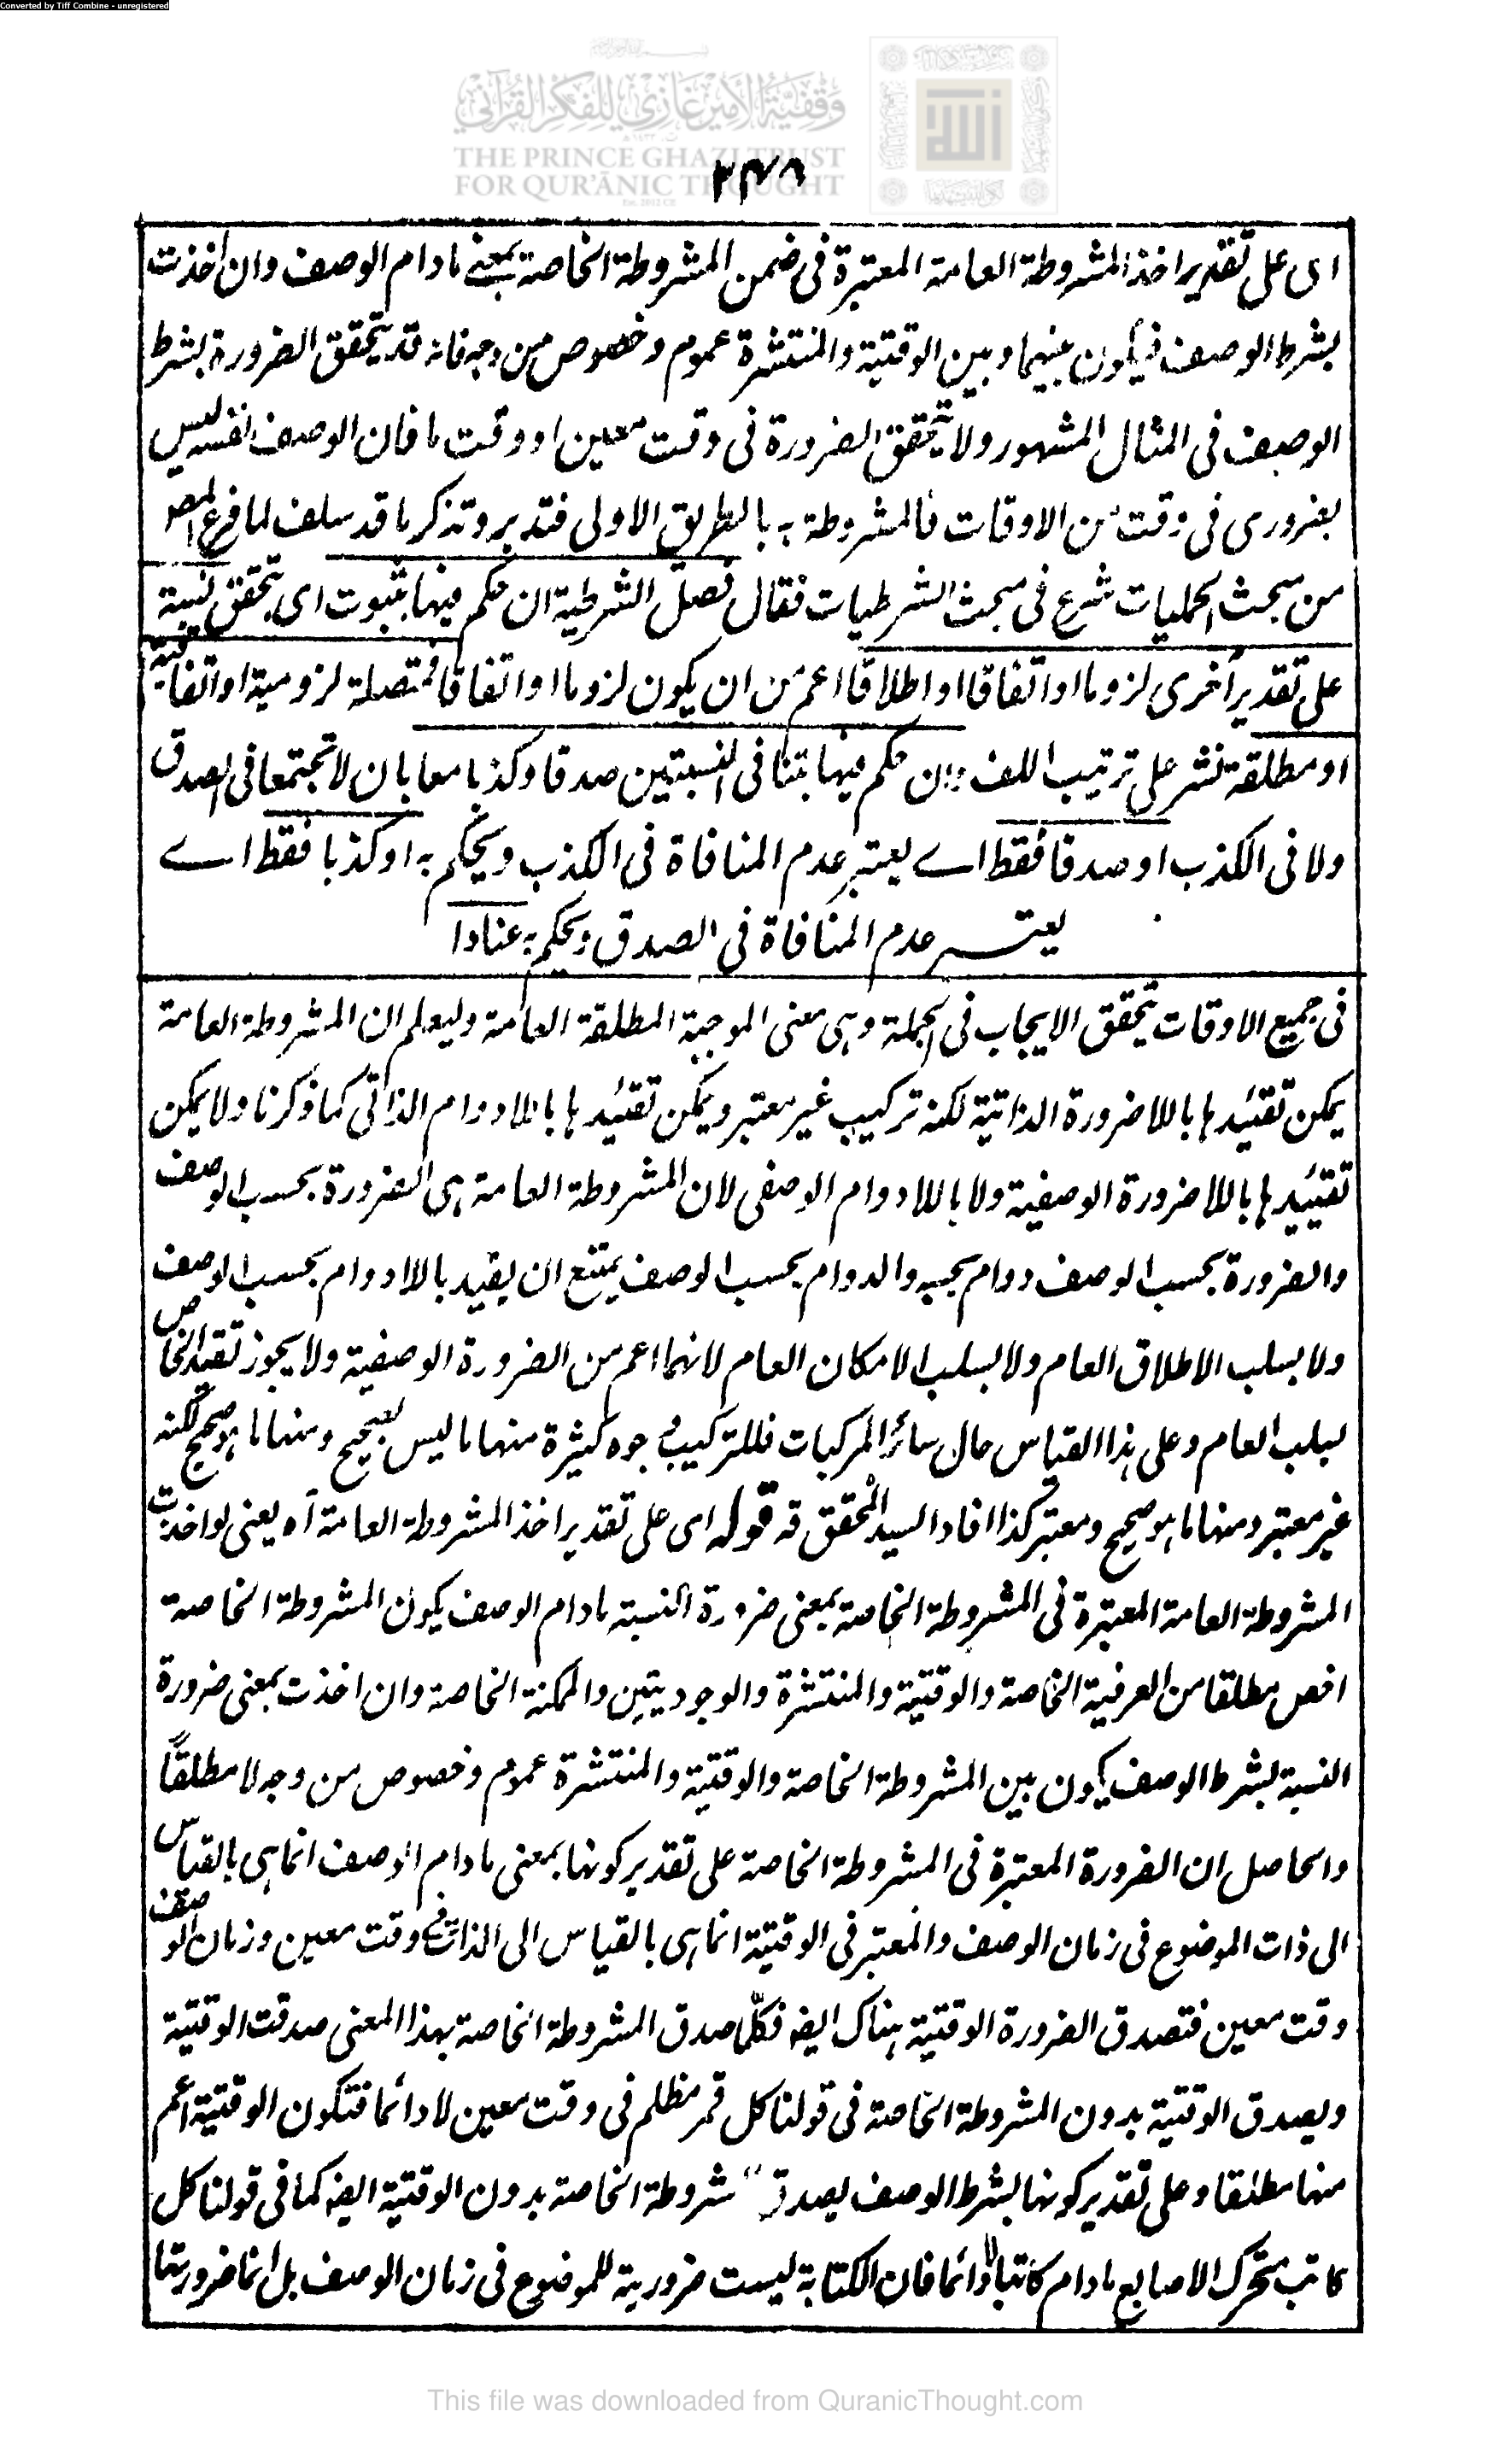 Converted by Tiff Combine - unregistered
وقفية الأمير غازي للفكر القرآني
THE PRINCE GHAZI TRUST
FOR QUR'ĀNIC THOUGHT
اى على تقدير اخذ المشروطة العامة المعتبرة فى ضمن المشروطة الخاصة بمعنى مادام الوصف وان اخذت
بشرط الوصف فيكون بينهما وبين الوقتية والمنتشرة عموم وخصوص من وجه فانه قد يتحقق الضرورة بشرط
الوصف فى المثال المشهور ولا يتحقق الضرورة فى وقت معين او وقت ما فان الوصف نفسه ليس
بضرورى فى وقت من الاوقات فالمشروطة به بالطريق الاولى فتدبر وتذكر ما قد سلف لما فرغ المصـ
من مبحث الحمليات شرع فى مبحث الشرطيات فقال فصل الشرطية ان حكم فيها بثبوت اى بتحقق نسبة
على تقدير أخرى لزوما او اتفاقا او اطلاقا اعم من ان يكون لزوما او اتفاقا فمتصلة لزومية او اتفاقية
او مطلقة نشر على ترتيب اللف وان حكم فيها بتنافى النسبتين صدقا وكذبا معا بان لا تجتمعا فى الصدق
ولا فى الكذب او صدقا فقط اے يعتبر عدم المنافاة فى الكذب ويحكم به او كذبا فقط اے
يعتبر عدم المنافاة فى الصدق ويحكم به عنادا
فى جميع الاوقات يتحقق الايجاب فى الجملة وهى معنى الموجبة المطلقة العامة وليعلم ان المشروطة العامة
يمكن تقئيدها باللاضرورة الذاتية لكنه تركيب غير معتبر ويمكن تقئيدها باللادوام الذاتى كما ذكرنا ولا يمكن
تقئييدها باللاضرورة الوصفية ولا باللادوام الوصفى لان المشروطة العامة هى الضرورة بحسب الوصف
والضرورة بحسب الوصف دوام بحسبه والدوام بحسب الوصف يمتنع ان يقيد باللادوام بحسب الوصف
ولا بسلب الاطلاق العام ولا بسلب الامكان العام لانهما اعم من الضرورة الوصفية ولا يجوز تقيد الخاص
بسلب العام وعلى هذا القياس حال سائر المركبات فللتركيب وجوه كثيرة منها ما ليس بصحيح ومنها ما هو صحيح لكنه
غير معتبر ومنها ما هو صحيح ومعتبر كذا افاد السيد المحقق قه قوله اى على تقدير اخذ المشروطة العامة آه يعنى لو اخذت
المشروطة العامة المعتبرة فى المشروطة الخاصة بمعنى ضرورة النسبة مادام الوصف يكون المشروطة الخاصة
اخص مطلقا من العرفية الخاصة والوقتية والمنتشرة والوجوديتين والممكنة الخاصة وان اخذت بمعنى ضرورة
النسبة بشرط الوصف يكون بين المشروطة الخاصة والوقتية والمنتشرة عموم وخصوص من وجه لا مطلقاً
والحاصل ان الضرورة المعتبرة فى المشروطة الخاصة على تقدير كونها بمعنى مادام الوصف انما هى بالقياس
الى ذات الموضوع فى زمان الوصف والمعتبر فى الوقتية انما هى بالقياس الى الذات فى وقت معين وزمان الوصف
وقت معين فتصدق الضرورة الوقتية هناك ايضه فكلّما صدق المشروطة الخاصة بهذا المعنى صدقت الوقتية
ويصدق الوقتية بدون المشروطة الخاصة فى قولنا كل قمر مظلم فى وقت معين لا دائما فتكون الوقتية اعم
منها مطلقا وعلى تقدير كونها بشرط الوصف يصدق المشروطة الخاصة بدون الوقتية ايضه كما فى قولنا كل
كاتب متحرك الاصابع مادام كاتبا لا دائما فان الكتابة ليست ضرورية للموضوع فى زمان الوصف بل انما ضرورتها
This file was downloaded from QuranicThought.com